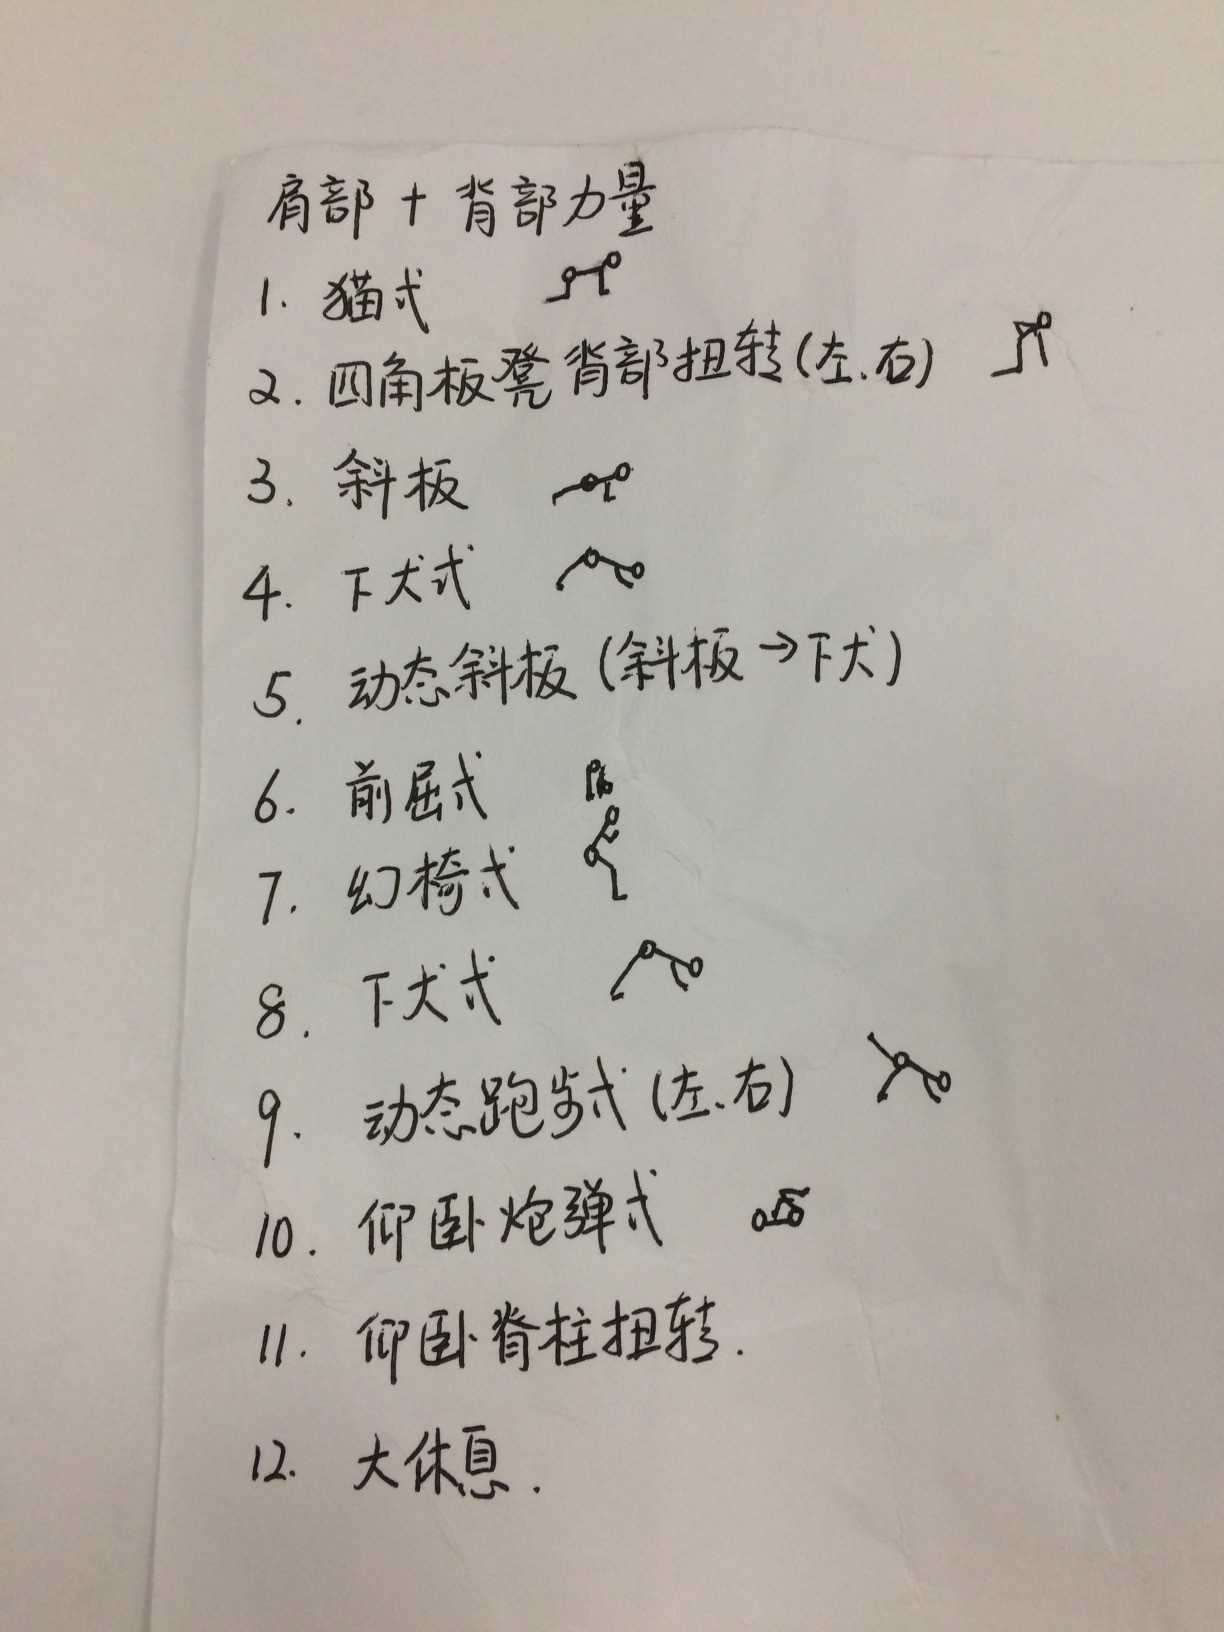 肩部 + 背部力量
1. 猫式
2. 四角板凳背部扭转(左、右)
3. 斜板
4. 下犬式
5. 动态斜板(斜板→下犬)
6. 前屈式
7. 幻椅式
8. 下犬式
9. 动态跑步式(左、右)
10. 仰卧炮弹式
11. 仰卧脊柱扭转.
12. 大休息.